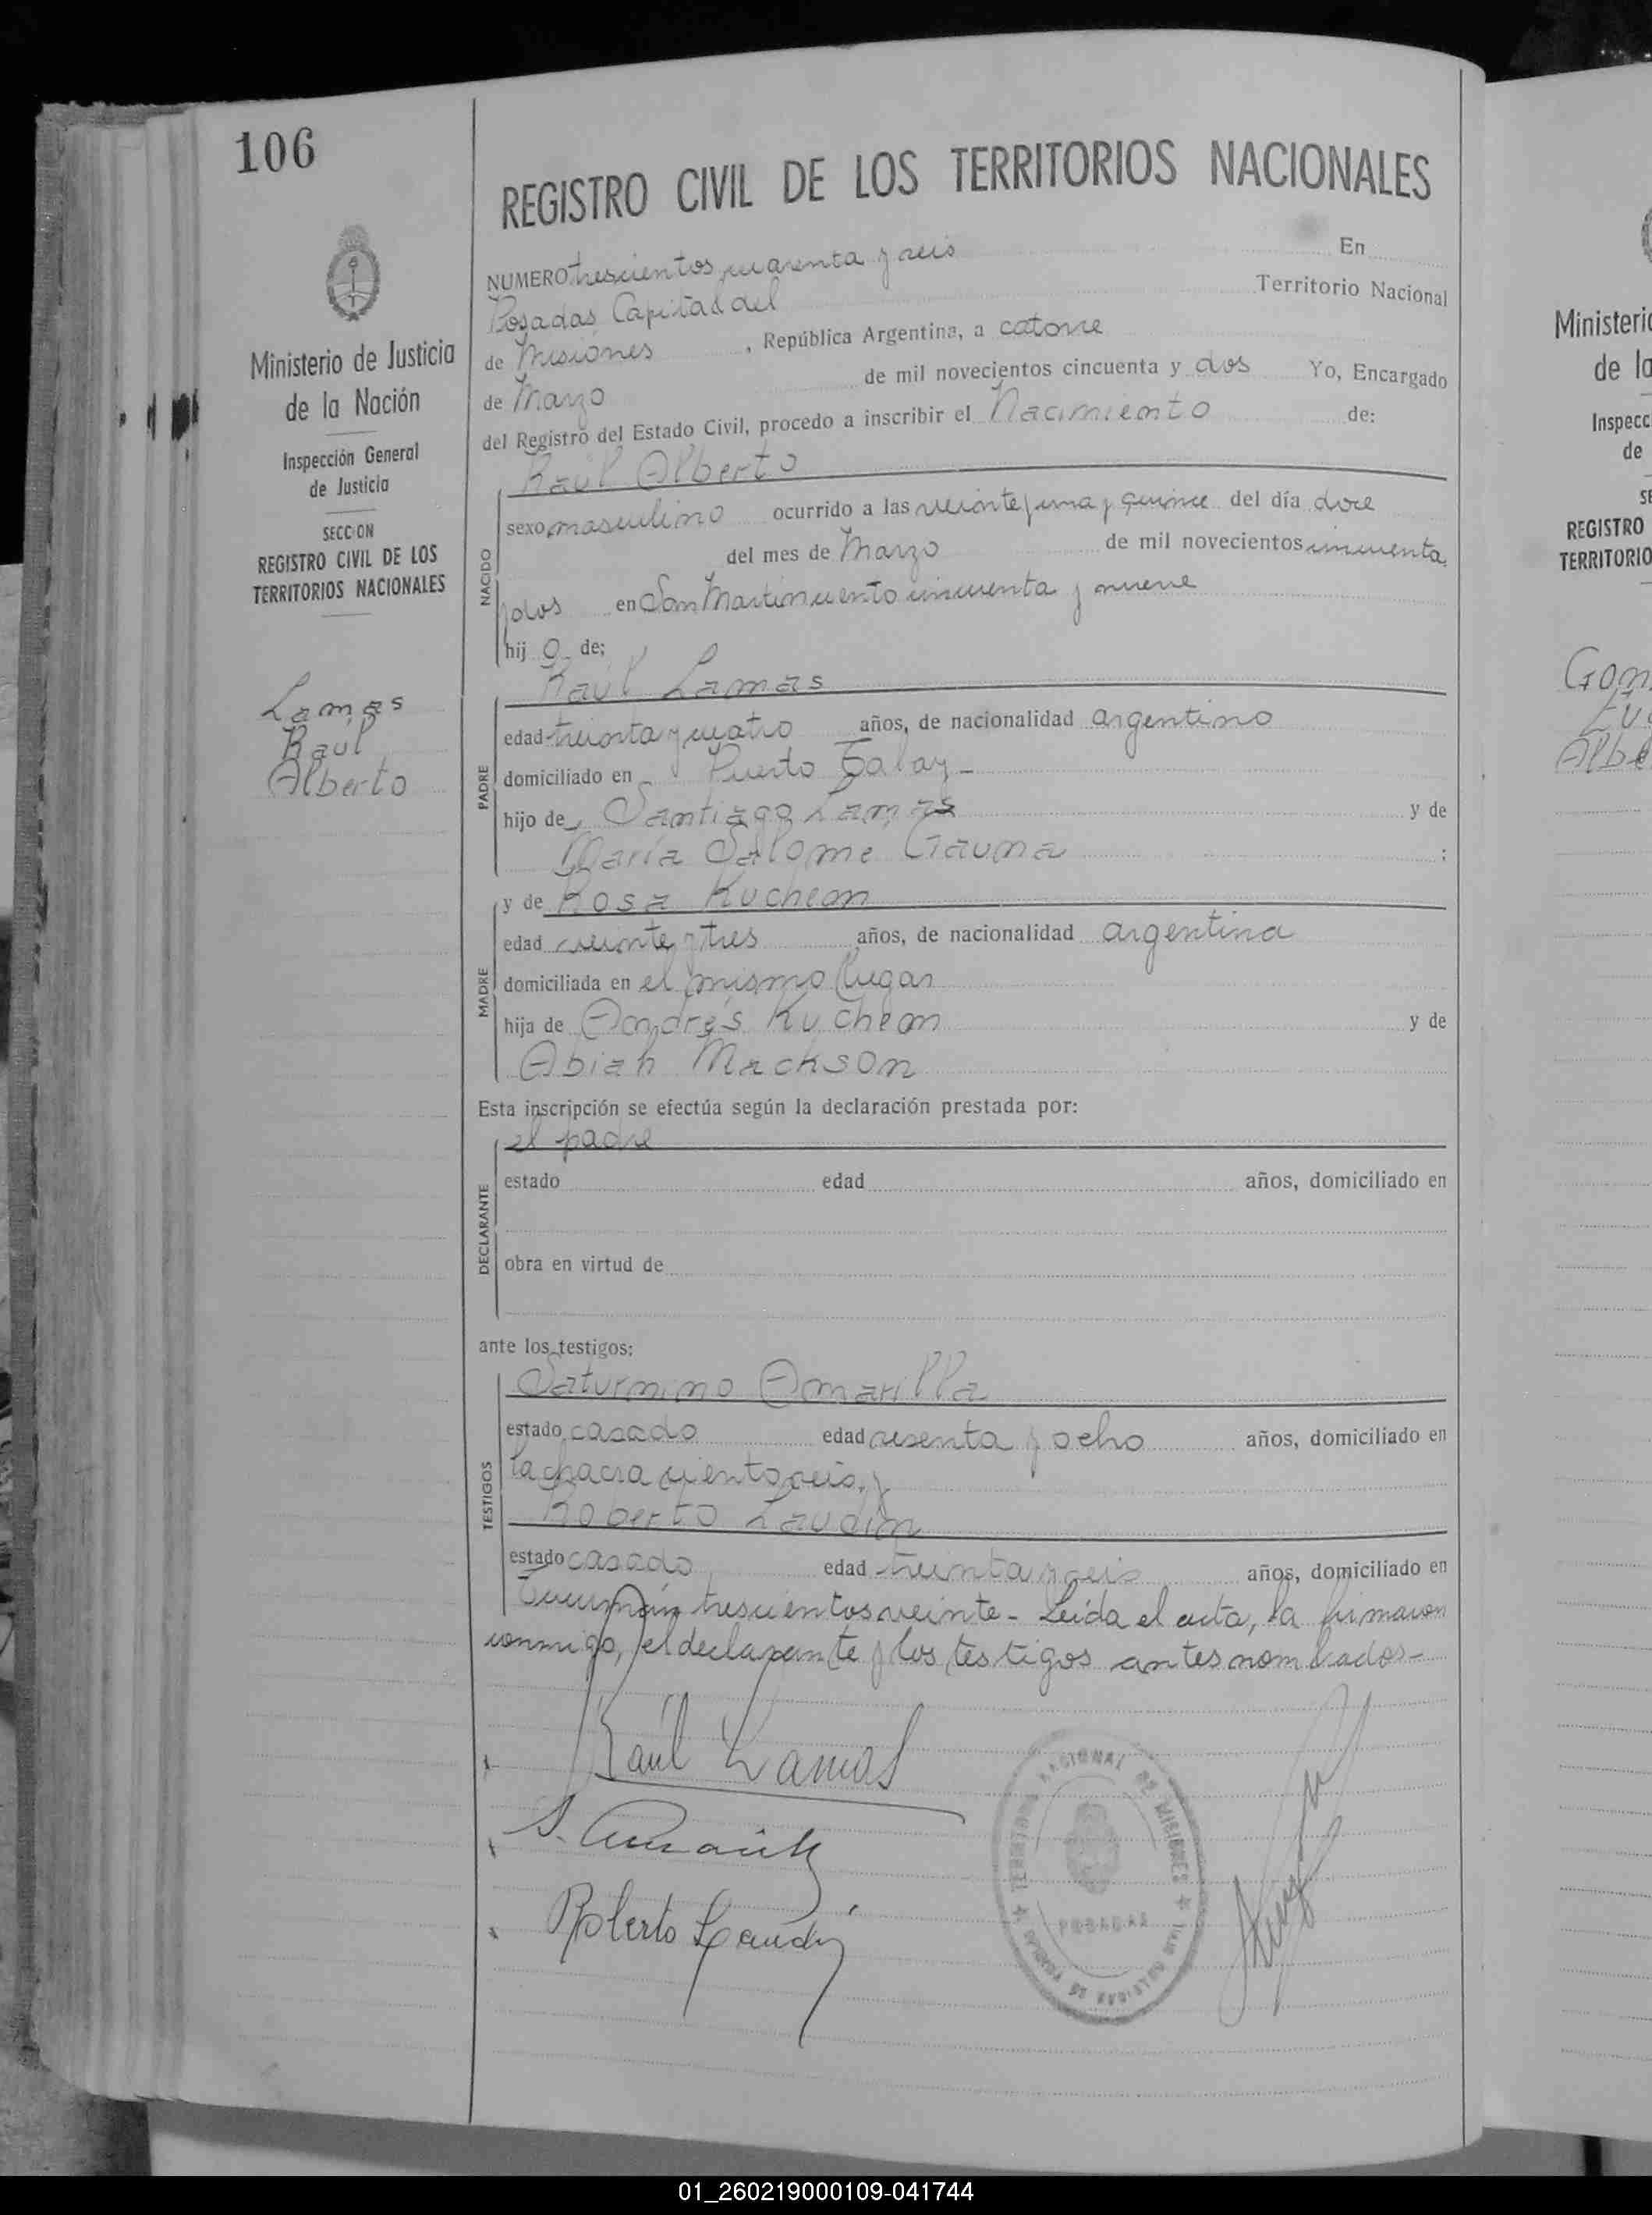 106
REGISTRO CIVIL DE LOS TERRITORIOS NACIONALES
Ministerio de Justicia
de la Nación
Inspección General
de Justicia
SECCION
REGISTRO CIVIL DE LOS
TERRITORIOS NACIONALES
Lamas
Raúl
Alberto
NUMERO trescientos cuarenta y seis En
Posadas Capital del Territorio Nacional
de Misiones, República Argentina, a catorce
de Marzo de mil novecientos cincuenta y dos Yo, Encargado
del Registro del Estado Civil, procedo a inscribir el Nacimiento de:
Raúl Alberto
NACIDO
sexo masculino ocurrido a las veinte y una y quince del día doce
del mes de Marzo de mil novecientos cincuenta
y dos en San Martin ciento cincuenta y nueve
hij o de;
Raúl Lamas
PADRE
edad treinta y cuatro años, de nacionalidad argentino
domiciliado en Puerto
hijo de Santiago Lamas y de
María Salome Gauna ;
y de Rosa Kuchem
MADRE
edad veinte y tres años, de nacionalidad argentina
domiciliada en el mismo lugar
hija de Andrés Kuchem y de
Abiah Mackson
Esta inscripción se efectúa según la declaración prestada por:
el padre
DECLARANTE
estado edad años, domiciliado en
obra en virtud de
ante los testigos:
Saturnino Amarilla
TESTIGOS
estado casado edad sesenta y ocho años, domiciliado en
la chacra ciento seis y
Roberto Laudin
estado casado edad treinta y seis años, domiciliado en
Tucumán trescientos veinte - Leída el acta, la firmaron
conmigo, el declarante y los testigos antes nombrados -
Raúl Lamas
Roberto Laudin
NACIONAL DE MISIONES
POSADAS
Ministerio
de la
Inspecc
de
SE
REGISTRO
TERRITORIO
01_260219000109-041744